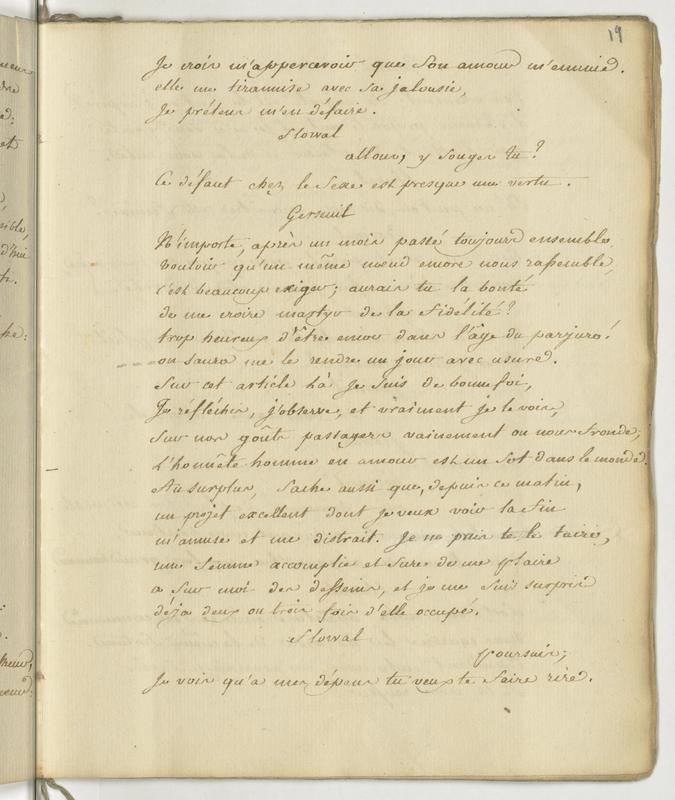 19
Je crois m'appercevoir que son amour m'ennuie.
elle me tirannise avec sa jalousie,
Je prétens m'en défaire.
Florval
allons, y songes tu?
Ce défaut chez le Sexe est presque une vertu.
Gerseuil
N'importe, après un mois passé toujours ensemble,
vouloir qu'un même nœud encore nous rassemble,
c'est beaucoup exiger; aurais tu la bonté
de me croire martyr de la fidélité?
trop heureux d'être encor dans l'âge du parjure!
on saura me le rendre un jour avec usure.
Sur cet article là je suis de bonne foi,
Je réfléchis, j'observe, et vraiment je le vois,
Sur nos goûts passagers vainement on nous fronde;
L'honnête homme en amour est un sot dans le monde.
Au surplus, sache aussi que, depuis ce matin,
un projet excellent dont je veux voir la fin
m'amuse et me distrait. Je ne puis te le taire,
une femme accomplie et sure de me plaire
a sur moi des desseins, et je me suis surpris
déja deux ou trois fois d'elle occupé.
Florval
Poursuis;
Je vois qu'a mes dépens tu veux te faire rire.